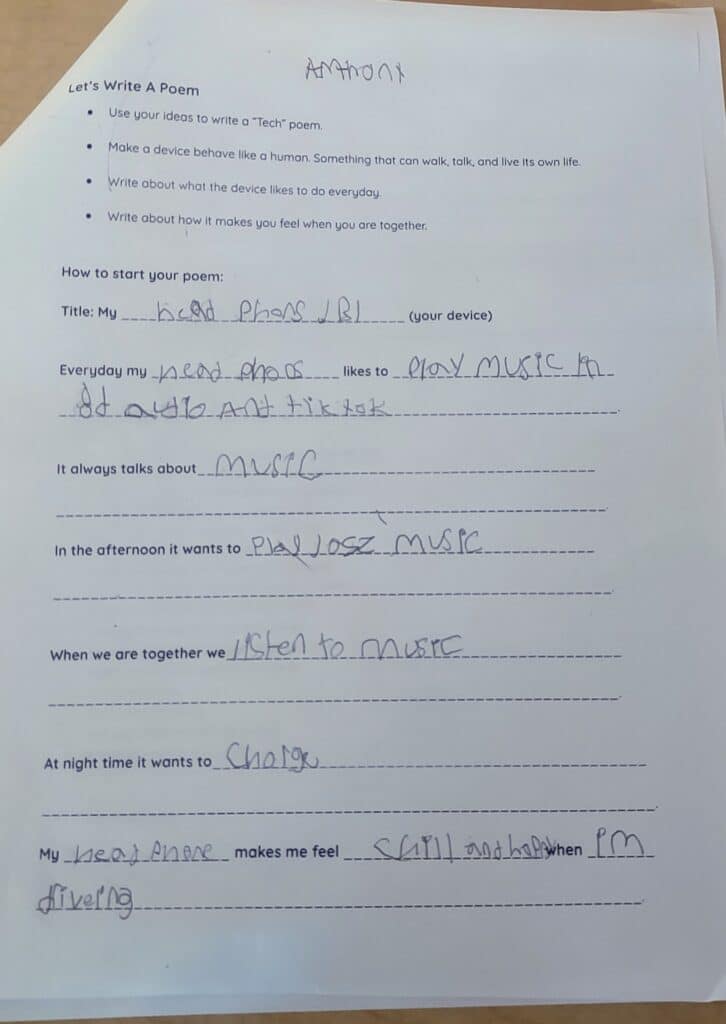 Anthony
Let's Write A Poem
• Use your ideas to write a "Tech" poem.
• Make a device behave like a human. Something that can walk, talk, and live its own life.
• Write about what the device likes to do everyday.
• Write about how it makes you feel when you are together.
How to start your poem:
Title: My head phons JBl (your device)
Everyday my head phos likes to play music in
8d audio And tik tok
It always talks about music
In the afternoon it wants to Play music
When we are together we listen to music
At night time it wants to Charge
My head Phone makes me feel chill and happy when I'm
driveing